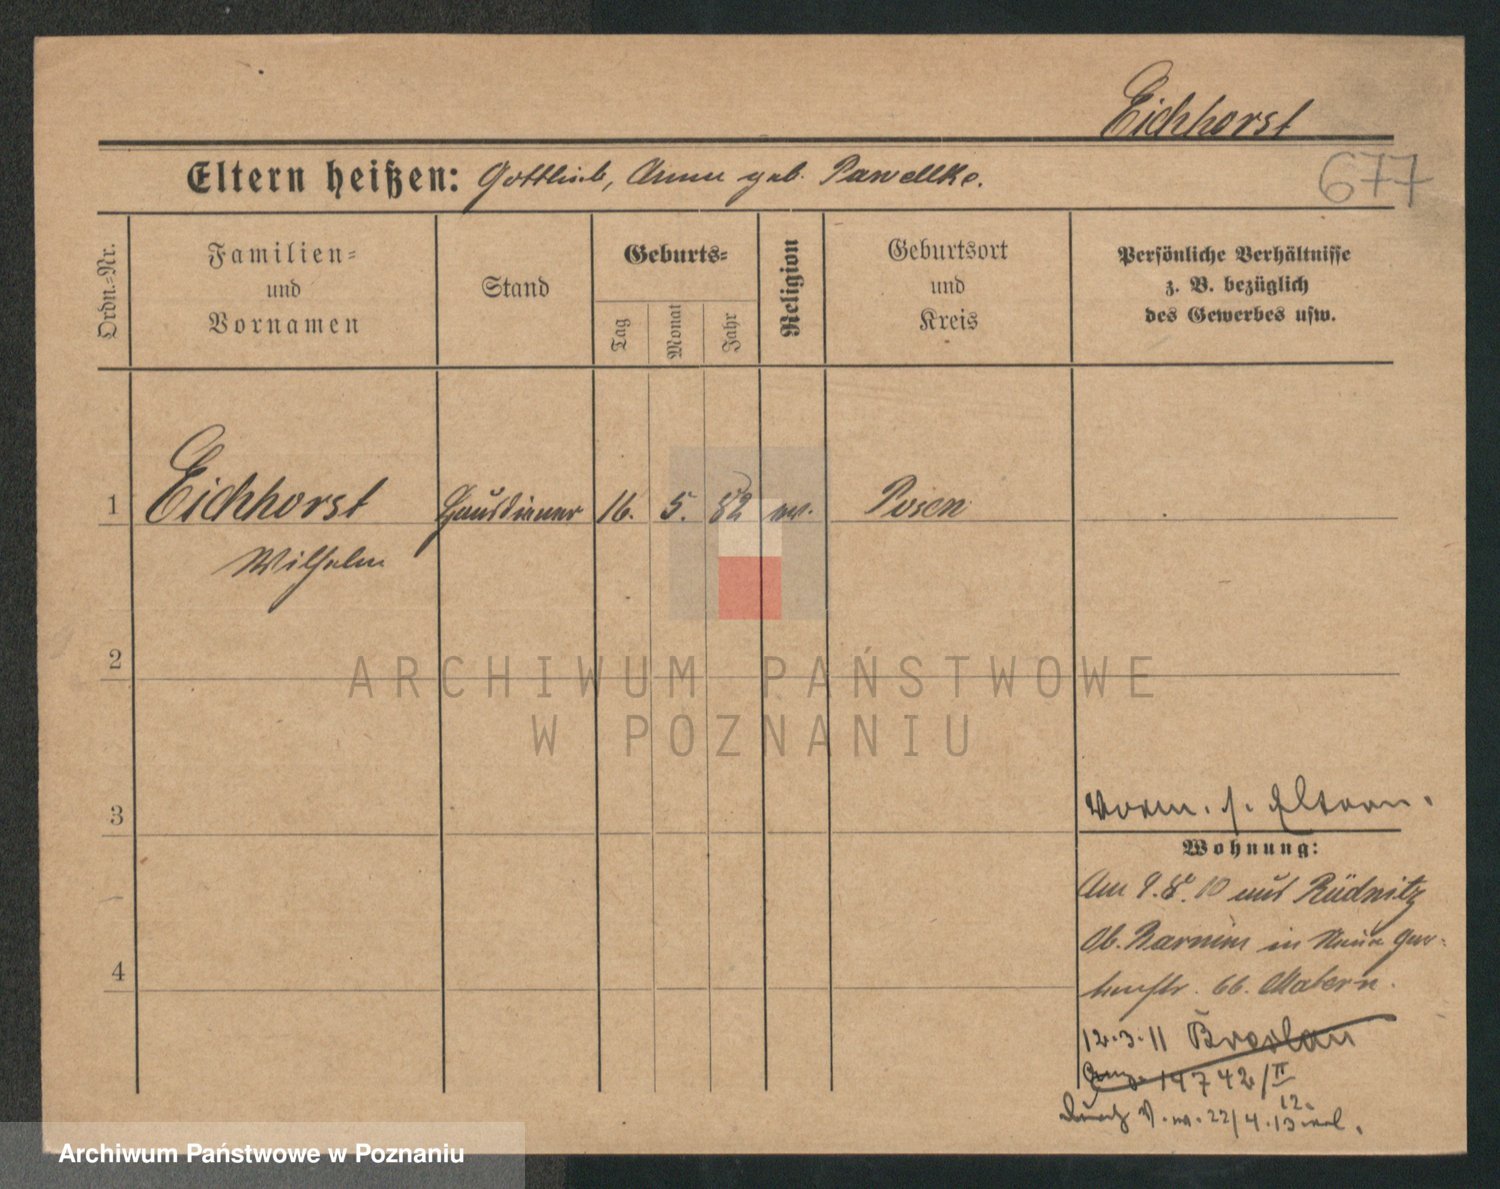 Eichhorst
Eltern heißen: Gottlieb, Anna geb. Pawellke.
677
Ordn.-Nr.
Familien-
und
Vornamen
Stand
Geburts-
Tag
Monat
Jahr
Religion
Geburtsort
und
Kreis
Persönliche Verhältnisse
z. B. bezüglich
des Gewerbes usw.
1 Eichhorst Hausdiener 16. 5. 82 ev. Posen
Wilhelm
2
ARCHIWUM PAŃSTWOWE
W POZNANIU
3
Vorm. s. Eltern.
Wohnung:
Am 9.8.10 aus Rüdnitz
Ob. Barnim in Neue Gar-
tenstr. 66. Matern.
4
12.3.11 Breslau
14742/II
12.
22/4.13
Archiwum Państwowe w Poznaniu